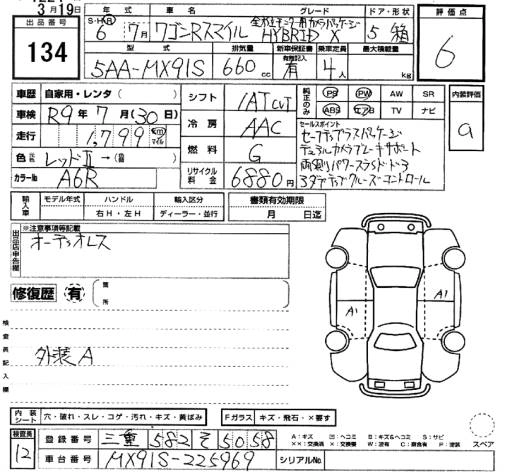 3月19日
134
年式 車名 グレード ドア・形状
S・H・R 6年 7月 ワゴンRスマイル 全方位モニター用カメラパッケージ HYBRID X 5 箱
型式 排気量 新車保証書 乗車定員 最大積載量
有無記入
5AA-MX91S 660cc 有 4人 kg
評価点
6
車歴 自家用・レンタ( )
車検 R9年 7月(30日)
走行 1,799 km マイル
色 レッドⅡ→( )
カラーNo A6R
シフト 1AT CVT
冷房 AAC
燃料 G
リサイクル料金 6880円
純正のみ PS PW AW SR
ABS エアB TV ナビ
内装評価
a
セールスポイント
セーフティプラスパッケージ
デュアルカメラブレーキサポート
両側パワースライドドア
アダプティブクルーズコントロール
輸入車 モデル年式 ハンドル 輸入区分 書類有効期限
年 右H・左H ディーラー・並行 月 日迄
出品店申告欄 ※注意事項等記載
オーディオレス
修復歴 有 箇所
検査員記入欄
外装A
A1 A1
内装シート 穴・破れ・スレ・コゲ・汚れ・キズ・黄ばみ Fガラス キズ・飛石・×要す
検査員 12
登録番号 三重 582 そ 5058
車台番号 MX91S-225969 シリアルNo
A:キズ U:ヘコミ B:キズ&ヘコミ S:サビ
××:交換済 ×:要交換 W:波有 C:腐食有 P:塗装
スペア